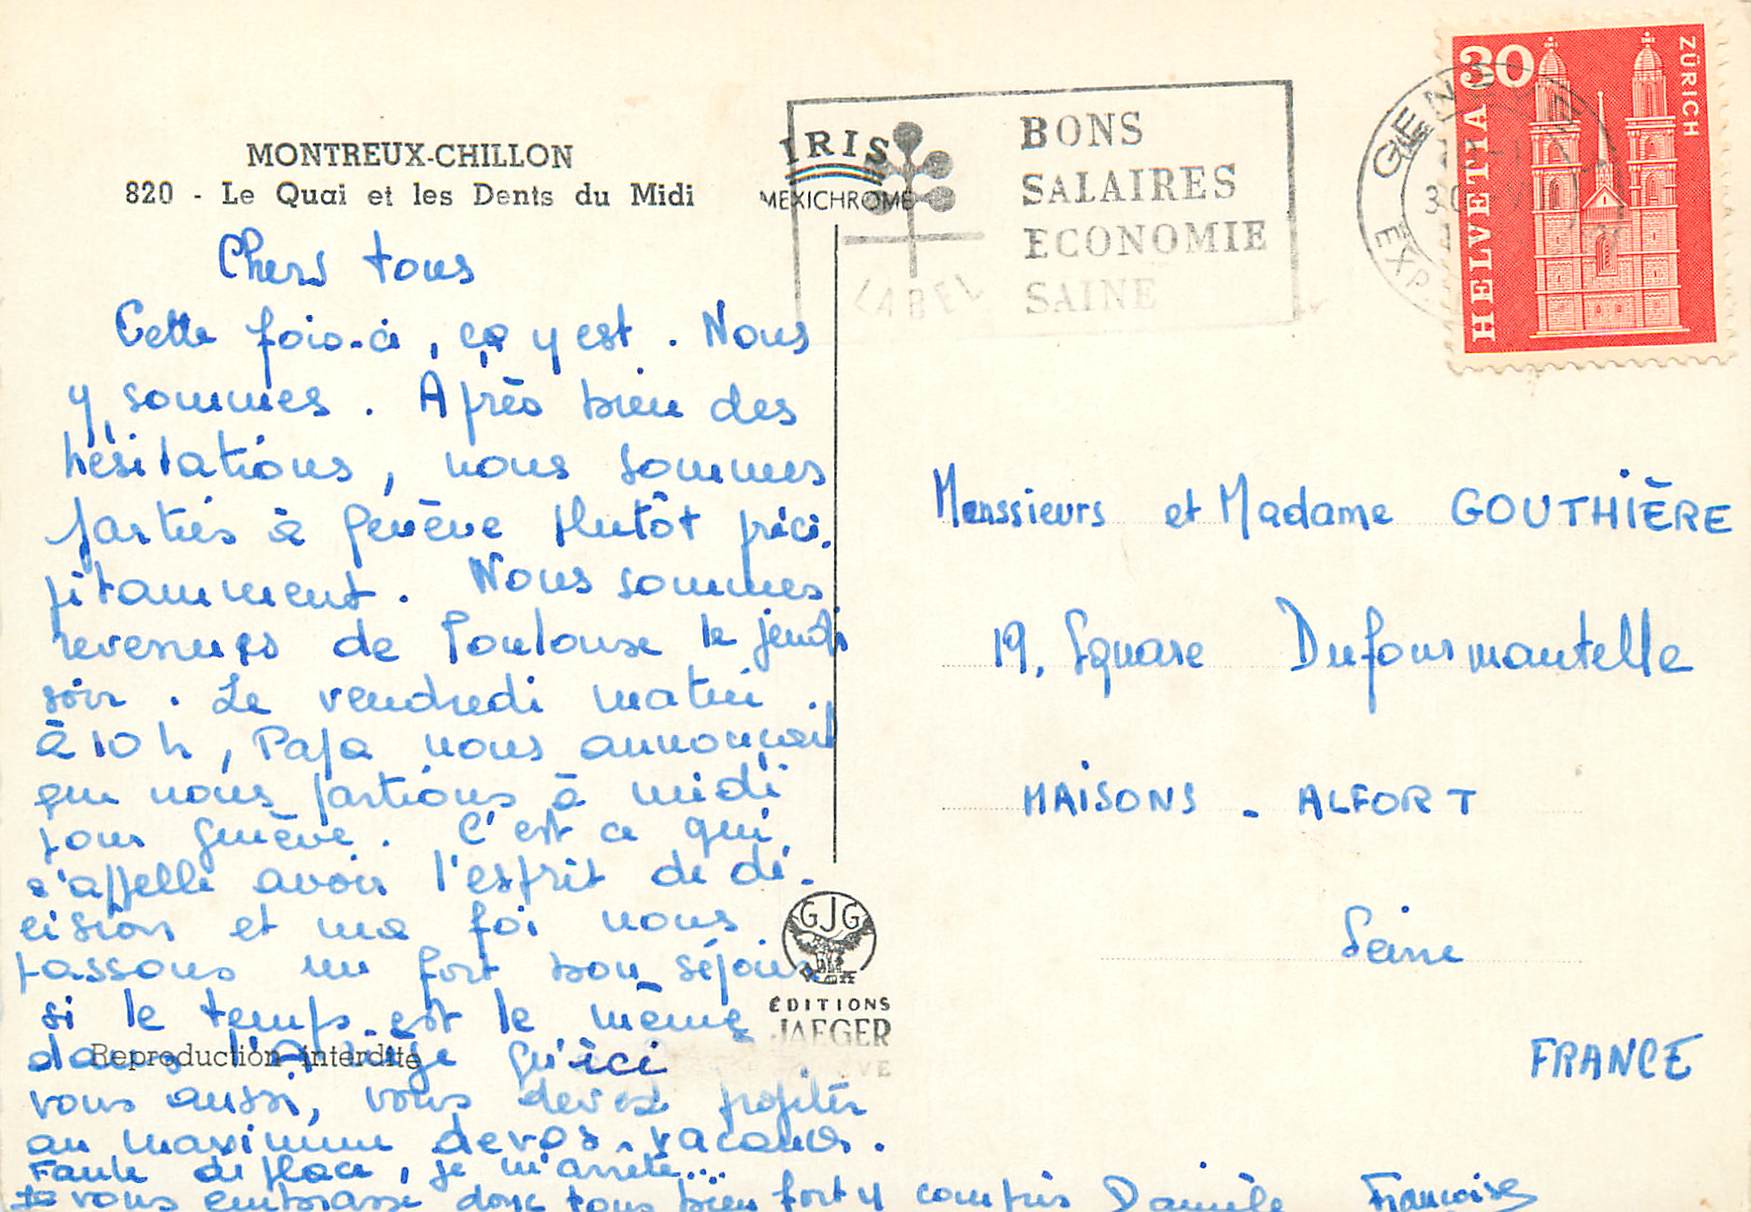 MONTREUX-CHILLON
820 - Le Quai et les Dents du Midi
Chers tous
Cette fois-ci, ça y est. Nous
y sommes. Après bien des
hésitations, nous sommes
parties à Genève plutôt préci-
pitamment. Nous sommes
revenues de Toulouse le jeudi
soir. Le vendredi matin
à 10 h, Papa nous annonçait
que nous partions à midi
pour Genève. C'est ce qui
s'appelle avoir l'esprit de dé-
cision et ma foi nous
passons un fort bon séjour
si le temps est le même
dans l'Ariège qu'ici
Reproduction interdite
vous aussi, vous devez profiter
au maximum de vos vacances.
Faute de place, je m'arrête...
Je vous embrasse donc tous bien fort y compris Danièle Françoise
IRIS
MEXICHROME
LABEL
BONS
SALAIRES
ECONOMIE
SAINE
GEN
EXP.
30
HELVETIA
ZÜRICH
Menssieurs et Madame GOUTHIÈRE
19, Square Dufourmantelle
MAISONS - ALFORT
Seine
FRANCE
GJG
ÉDITIONS
JAEGER